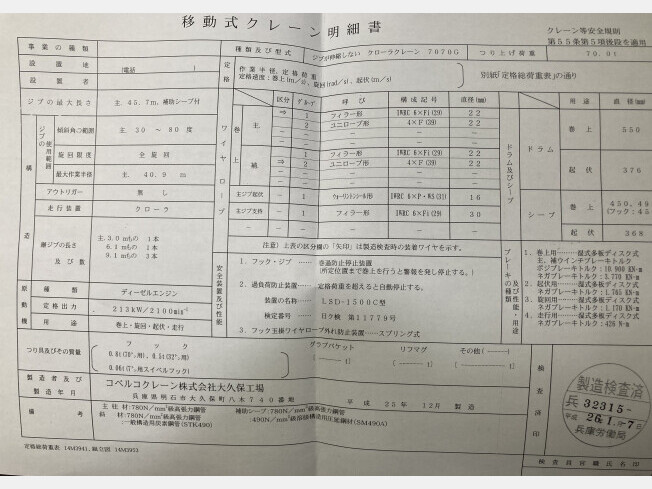 移動式クレーン明細書
クレーン等安全規則
第55条第5項後段を適用
事業の種類
種類及び型式
ジブが伸縮しない クローラクレーン 7070G
つり上げ荷重
70.0t
設置地
(電話
定格
作業半径、定格荷重
定格速度:巻上(m/s)、旋回(rad/s)、起伏(m/s)
別紙「定格総荷重表」の通り
設置者
ジブの最大長さ
主.45.7m, 補助シーブ付
構造
ジブの使用範囲
傾斜角の範囲
主.30 ~ 80度
旋回限度
全旋回
最大作業半径
主.40.9 m
アウトリガー
無し
走行装置
クローラ
継ジブの長さ
及び数
主.3.0mもの 1本
6.1mもの 1本
9.1mもの 3本
ワイヤロープ
区分
呼び
構成記号
直径(mm)
巻上
主.
⇒ 1 フィラー形 IWRC 6×Fi(29) 22
2 ユニロープ形 4×F(29) 22
補.
1 フィラー形 IWRC 6×Fi(29) 22
⇒ 2 ユニロープ形 4×F(29) 22
主ジブ起伏 - 1 ウォーリントンシール形 IWRC 6×P・WS(31) 16
主ジブ支持 - 1 フィラー形 IWRC 6×Fi(29) 30
ドラム及びシーブ
用途
直径(mm)
ドラム
巻上 550
起伏 376
シーブ
巻上
450,49
(フック:45
起伏 368
注意) 上表の区分欄の「矢印」は製造検査時の装着ワイヤを示す。
安全装置及び性能
1.フック・ジブ 巻過防止停止装置
(所定位置まで巻上を行うと警報を発し停止する。)
2.過負荷防止装置……定格荷重を超えると自動停止する。
装置の名称…… LSD-1500C型
検定番号…… 日ク検 第11779号
3.フック玉掛ワイヤロープ外れ防止装置……スプリング式
ブレーキの種類及び性能・用途
1.巻上用………湿式多板ディスク式
主、補ウインチブレーキトルク
ポジブレーキトルク:10.900 KN-m
ネガブレーキトルク:5.770 KN-m
2.起伏用………湿式多板ディスク式
ネガブレーキトルク:1.765 KN-m
3.旋回用………湿式多板ディスク式
ネガブレーキトルク:1.170 KN-m
4.走行用………湿式多板ディスク式
ネガブレーキトルク:426 N-m
原動機
種類
ディーゼルエンジン
定格出力
213kW/2100min
用途
巻上・旋回・起伏・走行
つり具及びその質量
フック
グラブバケット
リフマグ
その他(
製造者及び
製造年月
コベルコクレーン株式会社大久保工場
兵庫県明石市大久保町八木740番地
平成 25年 12月 製造
備考
主柱材:780N/mm²級高張力鋼管
斜材:780N/mm²級高張力鋼管
:一般構造用炭素鋼管(STK490)
補助シーブ:780N/mm²級高張力鋼
検査済印
製造検査済
兵 32315-
平成 26.1.-7
兵庫労働局
検査員官職氏名印
定格総荷重表 14M3941,